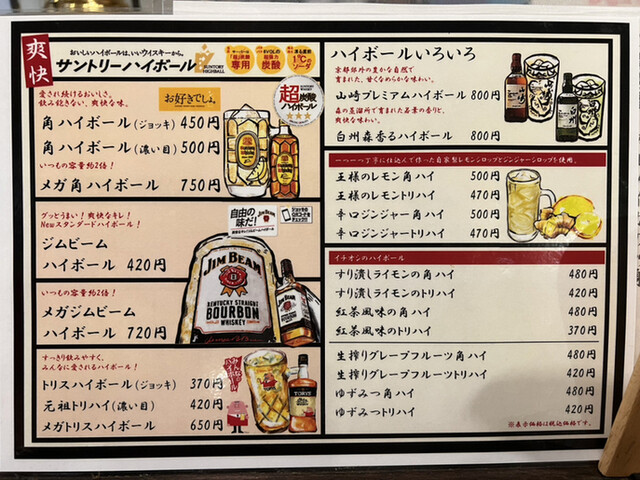 爽快
おいしいハイボールは、いいウイスキーから。
サントリーハイボール
SUNTORY
HIGHBALL
専用
炭酸
ソーダ
愛され続けるおいしさ。
飲み飽きない、爽快な味。
お好きでしょ。
超炭酸
ハイボール
★★★
角ハイボール(ジョッキ) 450円
角ハイボール(濃い目) 500円
いつもの容量約2倍!
メガ角ハイボール 750円
グッとうまい!爽快なキレ!
Newスタンダードハイボール!
自由の
味だ!
JIM BEAM
ジムビーム
ハイボール 420円
JIM BEAM
KENTUCKY STRAIGHT
BOURBON
WHISKEY
いつもの容量約2倍!
メガジムビーム
ハイボール 720円
すっきり飲みやすく、
みんなに愛されるハイボール!
トリスハイボール(ジョッキ) 370円
元祖トリハイ(濃い目) 420円
メガトリスハイボール 650円
みんなの
ハイボール
TORYS
ハイボールいろいろ
京都郊外の豊かな自然で
育まれた、甘くなめらかな味わい。
山崎プレミアムハイボール 800円
森の蒸溜所で育まれた若葉の香りと、
爽快な味わい。
白州森香るハイボール 800円
一つ一つ丁寧に仕込んで作った自家製レモンシロップとジンジャーシロップを使用。
王様のレモン角ハイ 500円
王様のレモントリハイ 470円
辛口ジンジャー角ハイ 500円
辛口ジンジャートリハイ 470円
イチオシのハイボール
すり潰しライモンの角ハイ 480円
すり潰しライモンのトリハイ 420円
紅茶風味の角ハイ 480円
紅茶風味のトリハイ 370円
生搾りグレープフルーツ角ハイ 480円
生搾りグレープフルーツトリハイ 420円
ゆずみつ角ハイ 480円
ゆずみつトリハイ 420円
※表示価格は税込価格です。